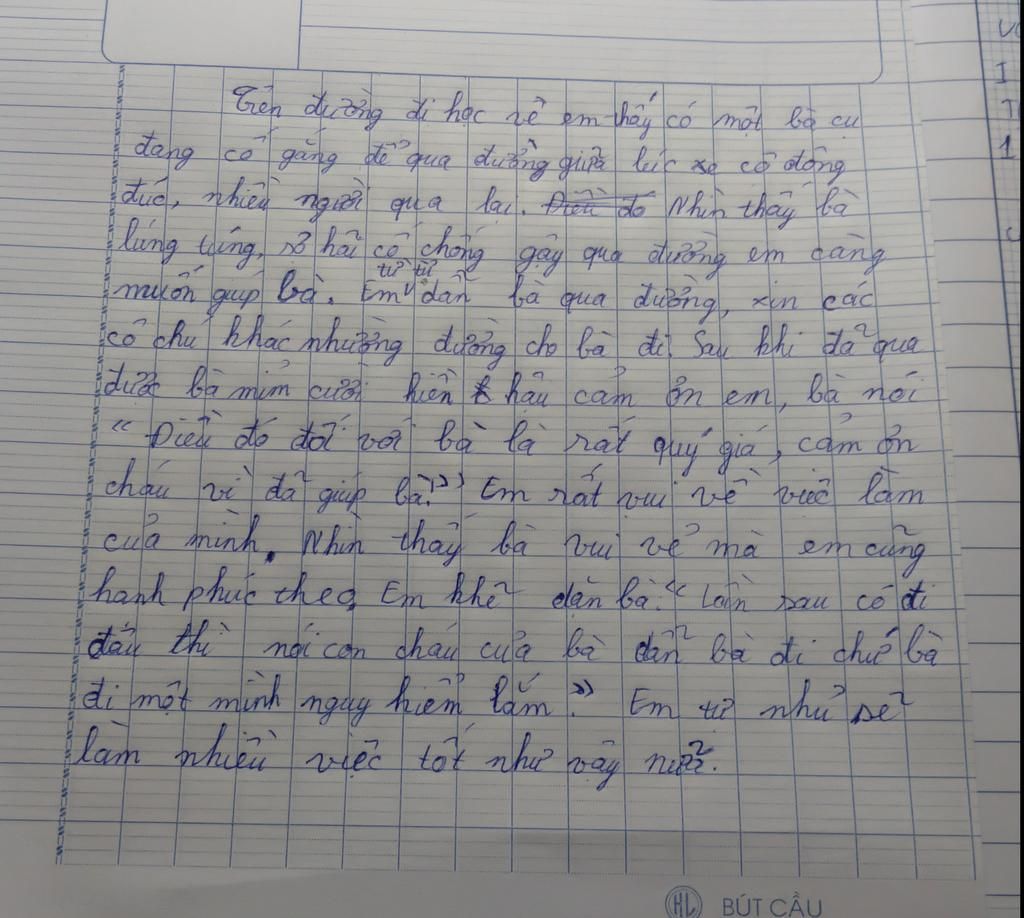 Trên đường đi học về em thấy có một bà cụ
đang cố gắng để qua đường giữa lúc xe cộ đông
đúc, nhiều người qua lại. Điều đó Nhìn thấy bà
lúng túng, sợ hãi cố chống gậy qua đường em càng
từ từ
muốn giúp bà. Em dẫn bà qua đường, xin các
cô chú khác nhường đường cho bà đi. Sau khi đã qua
được bà mỉm cười hiền hậu cảm ơn em, bà nói
“ Điều đó đối với bà là rất quý giá, cảm ơn
cháu vì đã giúp bà.” Em rất vui về việc làm
của mình. Nhìn thấy bà vui vẻ mà em cũng
hạnh phúc theo. Em khẽ dặn bà: “ Lần sau có đi
đâu thì nói con cháu của bà dẫn bà đi chứ bà
đi một mình nguy hiểm lắm ”. Em tự nhủ sẽ
làm nhiều việc tốt như vậy nữa.
HL BÚT CẦU